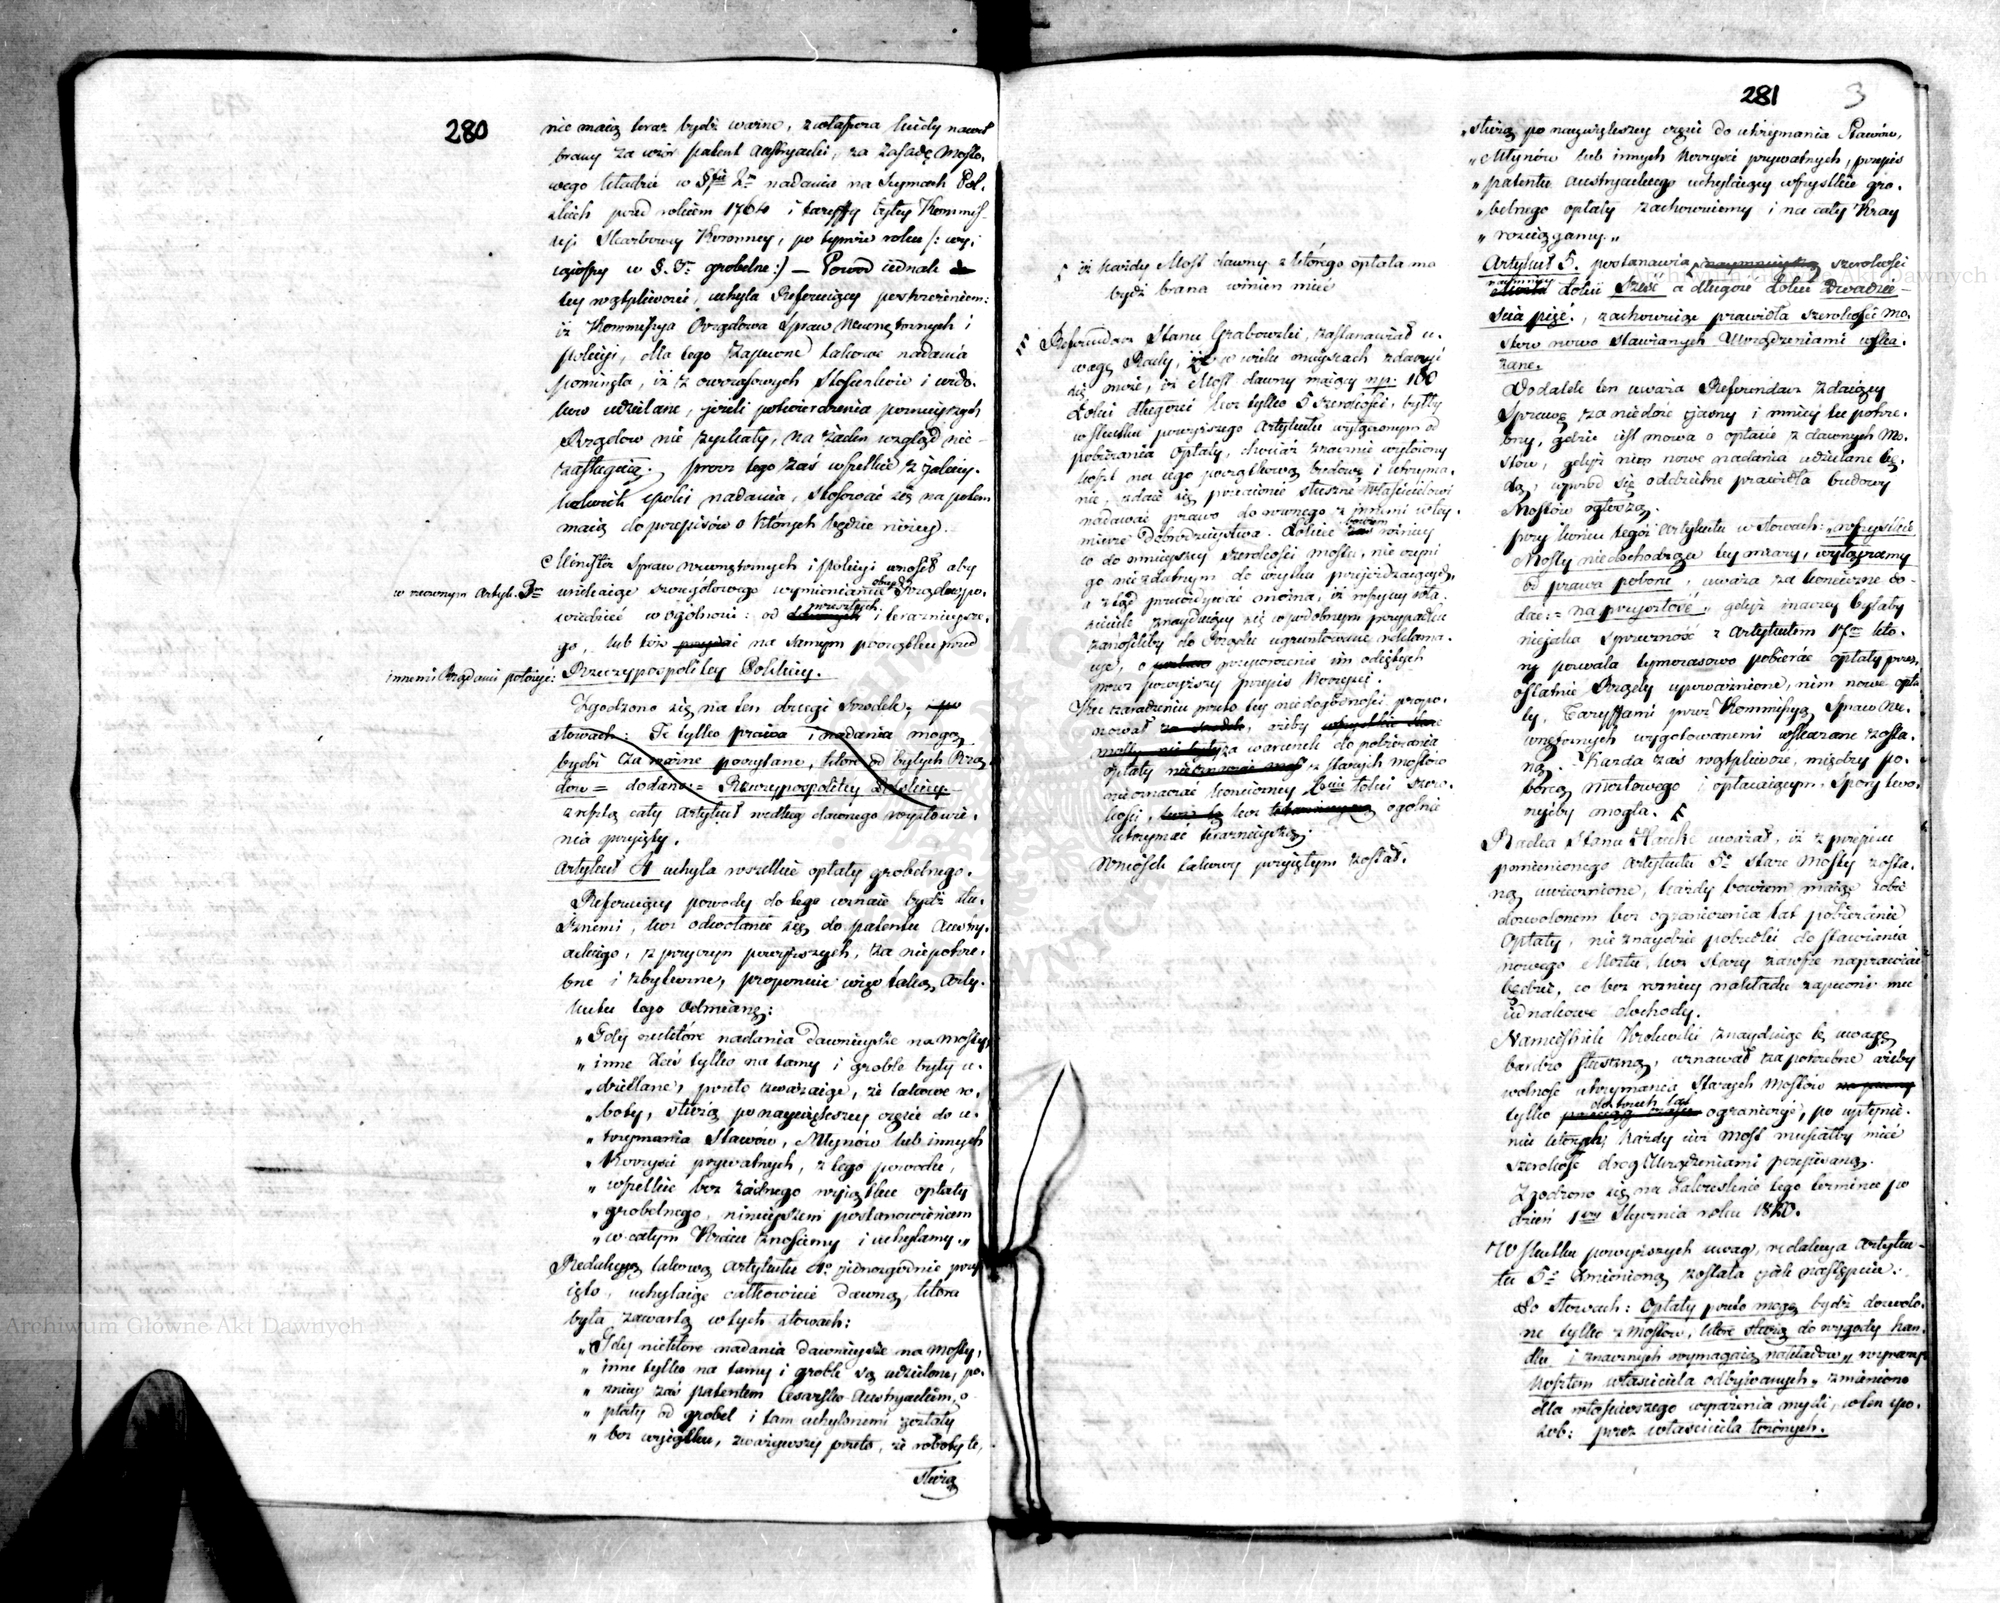 280
nie maią teraz bydź ważne, zwłaszcza kiedy nawet
brany za wzór patent Austryacki, za zasadę Mosto-
wego kładzie w §fie 2m nadania na Seymach Pol-
skich przed rokiem 1764 i taryffy byłey Kommis-
syi Skarbowey Koronney, po tymże roku /: wy-
iąwszy w §. 3: grobelne :/ — Powod iednak
tey wątpliwości, uchyla Referuiący postrzeżeniem:
iż Kommissya Rządowa Spraw Wewnętrznych i
Policyi, dla tego zapewne takowe nadania
pominęła, iż z owczasowych Stosunków i wido-
ków udzielane, jeżeli potwierdzenia pomnieyszych
Rządow nie zyskały, na żaden wzgląd nie
zasługuią; prócz tego zaś wszelkie z iakiey-
kolwiek epoki nadania, stosować się na potem
maią do przepisów o których będzie niżey.
Minister Spraw Wewnętrznych i Policyi wnosił aby
w rzeczonym Artyk. 3m unikaiąc szczegółowego wymieniania obcych Rządów, po-
wiedzieć w ogólności: od dawnych przeszłych i teraznieysze-
go, lub też przydać na samym początku przed
innemi Rządami położyć: Rzeczypospolitey Polskiey.
Zgodzono się na ten drugi Srodek, i po
słowach: Te tylko prawa i nadania mogą
bydź za ważne poczytane, które od byłych Rzą-
dów = dodano: = Rzeczypospolitey Polskiey.
zresztą cały Artykuł według dawnego wysłowie-
nia przyięty.
Artykuł 4 uchyla wszelkie opłaty grobelnego.
Referuiący powody do tego uznaie bydź słu-
sznemi, lecz odwołanie się do patentu Austry-
ackiego, z przyczyn powyższych, za niepotrze-
bne i zbyteczne, proponuie więc taką Arty-
kułu tego Odmianę:
„Gdy niektóre nadania dawnieysze na mosty,
„inne zaś tylko na tamy i groble były u-
„dzielane, przeto zważaiąc, że takowe ro-
„boty, służą po naywiększey części do u-
„trzymania Stawów, Młynów lub innych
„Korzyści prywatnych, z tego powodu,
„wszelkie bez żadnego wyiątku opłaty
„grobelnego, ninieyszem postanowieniem
„w całym Kraiu znosiemy i uchylamy.„
Redakcyą takową Artykułu 4o jednozgodnie przy-
ięto, uchylaiąc całkowicie dawną, która
była zawartą w tych słowach:
„Gdy niektóre nadania dawnieysze na mosty,
„inne tylko na tamy i groble są udzielone, po-
„zniey zaś patentem Cesarsko-Austryackim, o-
„płaty od grobel i tam uchylonemi zostały
„bez wyiątku, zważywszy przeto, że roboty te,
służą
iż każdy Most dawny z którego opłata ma
bydź brana winien mieć
Referendarz Stanu Grabowski, zastanawiał u-
wagę Rady, iż w wielu mieyscach zdarzyć
się może, iż Most dawny maiący np: 100
Łokci długości lecz tylko 5 szerokości, byłby
w skutku powyższego Artykułu wyłączonym od
pobierania Opłaty, chociaż znacznie wyłożony
koszt na iego początkową budowę i utrzyma-
nie, zdaie się przecięnie słusznie Właścicielowi
nadawać prawo do równego z innemi w tey
mierze Dobrodzieystwa. Łokieć bowiem różnicy
co do mnieyszey szerokości mostu, nie czyni
go niezdatnym do użytku przejeżdzaiących,
a ztąd przewidywać można, iż wszyscy wła-
ściciele znayduiący się w podobnym przypadku
zanosiliby do Rządu ugruntowane reklama-
cye, o przywrócenie im odiętych
przez powyższy przepis Korzyści.
Ku zaradzeniu przeto tey niedogodności, propo-
nował za srodek, ażeby wszystkie stare
mosty nie były za warunek do pobierania
opłaty z starych mostów
nieoznaczać koniecznej 6ciu łokci szero-
kości, lecz ogólnie
utrzymać teraznieyszą.
Wniosek takowy przyiętym został.
281
3
„służą po naywiększey części do utrzymania Stawów,
„Młynów lub innych Korzyści prywatnych, przepis
„patentu Austryackiego uchylaiący wszystkie gro-
„belnego opłaty zachowuiemy i na cały Kray
„rozciągamy.„
Artykuł 5. postanawia, naymnieyszą szerokości
naymniey Łokci sześć a długości Łokci dwadzie-
ścia pięć, zachowuiąc prawidła szerokości mo-
stów nowo stawianych Urządzeniami wska-
zane.
Dodatek ten uważa Referendarz zdaiący
Sprawę za niedość iawny i mniey tu potrze-
bny, gdzie iest mowa o opłacie z dawnych Mo-
stów, gdyż nim nowe nadania udzielane bę-
dą, wprzód się oddzielne prawidła budowy
Mostów ogłoszą.
przy końcu tegoż Artykułu w słowach: „wszystkie
Mosty niedochodzące tey miary, wyłączamy
od prawa poboru, uważa za konieczne do-
dać: = na przyszłość„ gdyż inaczey byłaby
niejaka Sprzeczność z Artykułem 17m któ-
ry pozwala tymczasowo pobierać opłaty przez
ostatnie Rządy upoważnione, nim nowe opła-
ty, Taryffami przez Kommissyą Spraw We-
wnętrznych wygotowanemi wskazane zosta-
ną. Każda zaś wątpliwość, między po-
borcą mostowego i opłacaiącym, Spory two-
rzyćby mogła.
Radca Stanu Hauke uważał, iż z przepisu
pomienionego Artykułu 5o stare Mosty zosta-
ną uwiecznione, każdy bowiem maiąc sobie
dozwolonem bez ograniczenia lat pobieranie
Opłaty, nie znaydzie pobudki do stawiania
nowego Mostu, lecz stary zawsze naprawiać
będzie, co bez wielkiey nakładu zapewni mu
iednakowe dochody.
Namiestnik Królewski znayduiąc tę uwagę
bardzo słuszną, uznawał za potrzebne ażeby
wolność utrzymania starych mostów
tylko do trzech lat ograniczyć, po upłynie-
niu których, każdy iuż most musiałby mieć
szerokość dróg Urządzeniami przepisaną.
Zgodzono się na zakreslenie tego terminu po
dzień 1szy Stycznia roku 1820.
W skutku powyższych uwag, redakcya Artyku-
łu 5o zmienioną została jak następuie:
Po słowach: Opłaty przeto mogą bydź dozwolo-
ne tylko z Mostów, które służą do wygody han-
dlu, i znacznych wymagaią nakładów„ wyrazy:
kosztem właściciela odbywanych„ zmieniono
dla właściwszego wyrażenia myśli, w ten spo-
sób: przez właściciela łożonych.
Archiwum Główne Akt Dawnych